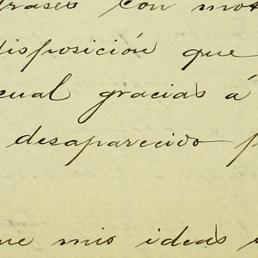 frases con mot
disposición que
cual gracias á
desaparecido p
ue mis ideas